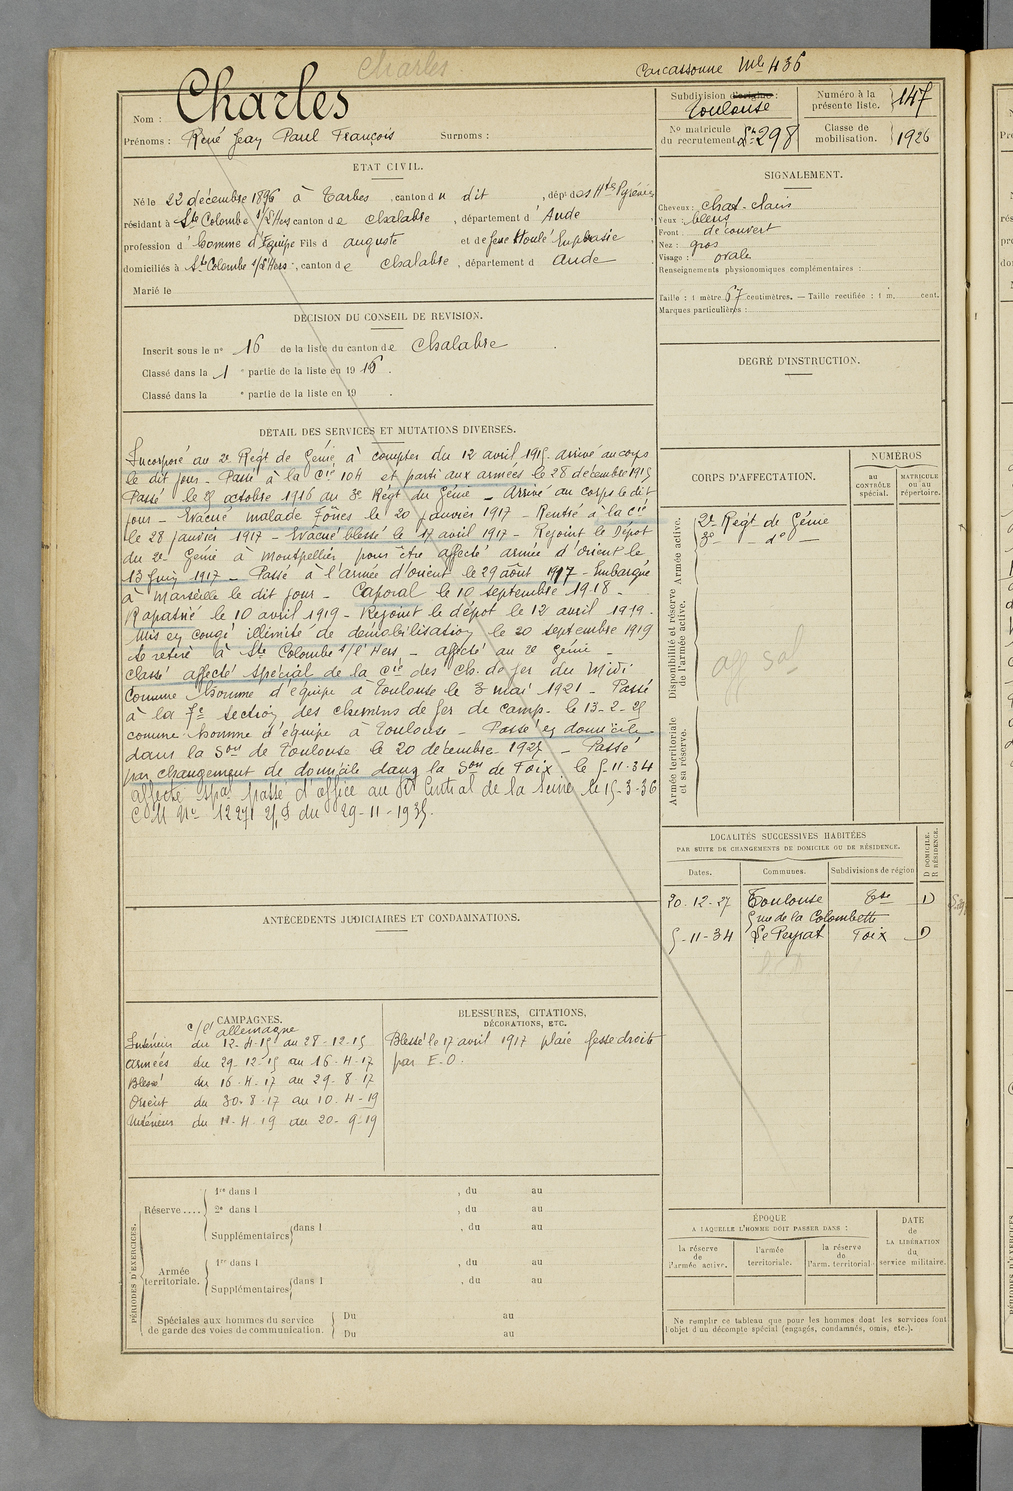 Charles
Carcassonne Mle 436
Nom : Charles
Prénoms : René Jean Paul François Surnoms :
Subdivision d'origine :
Toulouse
Numéro à la présente liste. 147
N° matricule du recrutement 298
Classe de mobilisation. 1926
ETAT CIVIL.
Né le 22 décembre 1896 à Tarbes, canton du dit, dépt des Htes Pyrénées
résidant à Ste Colombe s/l'Hers canton de Chalabre, département d' Aude
profession d' homme d'Équipe Fils d' auguste et de feue Euphrasie
domiciliés à Ste Colombe s/l'Hers, canton de Chalabre, département d Aude
Marié le
SIGNALEMENT.
Cheveux : chat-clairs
Yeux : bleus
Front : découvert
Nez : gros
Visage : ovale
Renseignements physionomiques complémentaires :
Taille : 1 mètre 67 centimètres. — Taille rectifiée : 1 m. cent.
Marques particulières :
DÉCISION DU CONSEIL DE REVISION.
Inscrit sous le n° 16 de la liste du canton de Chalabre
Classé dans la 1e partie de la liste en 1916.
Classé dans la e partie de la liste en 19 .
DEGRÉ D'INSTRUCTION.
DÉTAIL DES SERVICES ET MUTATIONS DIVERSES.
Incorporé au 2e Régt de Génie à compter du 12 avril 1915. arrivé au corps
le dit jour - Passé à la Cie 104 et parti aux armées le 28 décembre 1915
Passé le 25 octobre 1916 au 3e Régt du Génie - Arrivé au corps le dit
jour - Evacué malade le 20 janvier 1917 - Rentré à la Cie
le 28 janvier 1917 - Evacué blessé le 17 avril 1917 - Rejoint le Dépôt
du 2e Génie à Montpellier pour être affecté armée d'orient le
13 juin 1917 - Passé à l'armée d'orient le 29 août 1917 - Embarqué
à Marseille le dit jour - Caporal le 10 septembre 1918 -
Rapatrié le 10 avril 1919 - Rejoint le dépôt le 12 avril 1919.
Mis en congé illimité de démobilisation le 20 septembre 1919
se retire à Ste Colombe s/l'Hers - affecté au 2e génie -
Classé affecté spécial de la Cie des Ch. de fer du Midi
Comme homme d'équipe à Toulouse le 3 mai 1921 - Passé
à la 7e section des chemins de fer de camp. le 13-2-25
comme homme d'équipe à Toulouse - Passé en domicile
dans la Son de Toulouse le 20 décembre 1927 - Passé
par changement de domicile dans la Son de Foix le 5-11-34
affecté spal passé d'office au Rt Central de la Seine le 15-3-36
C M No 12271 2/S du 29-11-1935.
CORPS D'AFFECTATION.
NUMÉROS
au CONTRÔLE spécial.
MATRICULE ou au répertoire.
Armée active.
2e Régt de Génie
3e - do -
Disponibilité et réserve de l'armée active.
aff sal
Armée territoriale et sa réserve.
LOCALITÉS SUCCESSIVES HABITÉES
PAR SUITE DE CHANGEMENTS DE DOMICILE OU DE RÉSIDENCE.
D DOMICILE. R RÉSIDENCE.
Dates. Communes. Subdivisions de région
20-12-27 Toulouse Tse D
5 rue de la Colombette
5-11-34 Le Peyrat Foix D
ANTÉCÉDENTS JUDICIAIRES ET CONDAMNATIONS.
CAMPAGNES.
c/l' allemagne
Intérieur du 12-4-15 au 28-12-15
Armées du 29-12-15 au 16-4-17
Blessé du 16-4-17 au 29-8-17
Orient du 30-8-17 au 10-4-19
Intérieur du 11-4-19 au 20-9-19
BLESSURES, CITATIONS,
DÉCORATIONS, ETC.
Blessé le 17 avril 1917 plaie fesse droite
par E.O.
PÉRIODES D'EXERCICES.
Réserve....
1re dans l , du au
2e dans l , du au
Supplémentaires dans l , du au
Armée territoriale.
1re dans l , du au
Supplémentaires dans l , du au
Spéciales aux hommes du service
de garde des voies de communication.
Du au
Du au
ÉPOQUE
A LAQUELLE L'HOMME DOIT PASSER DANS :
la réserve de l'armée active.
l'armée territoriale.
la réserve de l'arm. territorial
DATE de LA LIBÉRATION du service militaire.
Ne remplir ce tableau que pour les hommes dont les services font
l'objet d'un décompte spécial (engagés, condamnés, omis, etc.).